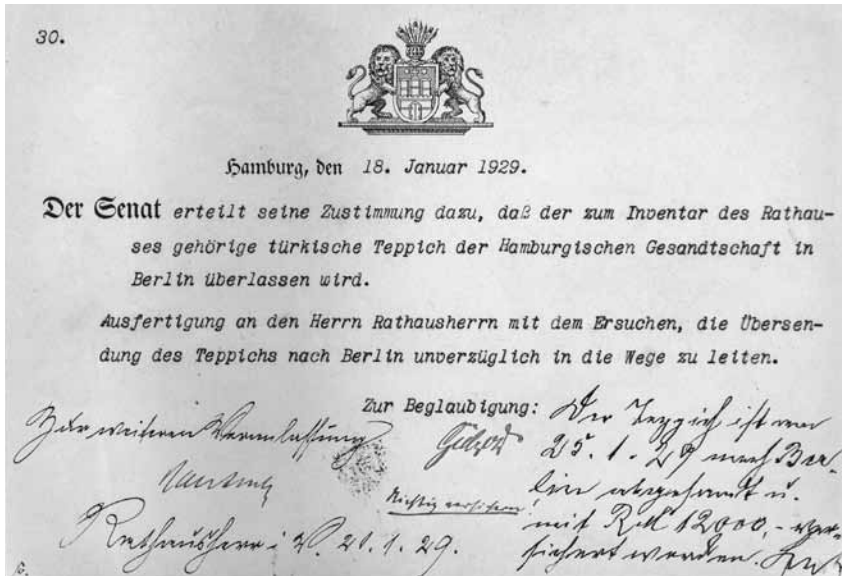 30.
Hamburg, den 18. Januar 1929.
Der Senat erteilt seine Zustimmung dazu, daß der zum Inventar des Rathau-
ses gehörige türkische Teppich der Hamburgischen Gesandtschaft in
Berlin überlassen wird.
Ausfertigung an den Herrn Rathausherrn mit dem Ersuchen, die Übersen-
dung des Teppichs nach Berlin unverzüglich in die Wege zu leiten.
Zur Beglaubigung:
Zur weiteren Veranlassung
Rathausherr i. V. 21.1.29.
Richtig versichern!
Der Teppich ist am
25.1.29 nach Ber-
lin abgesandt u.
mit RM 12000,- ver-
sichert worden.